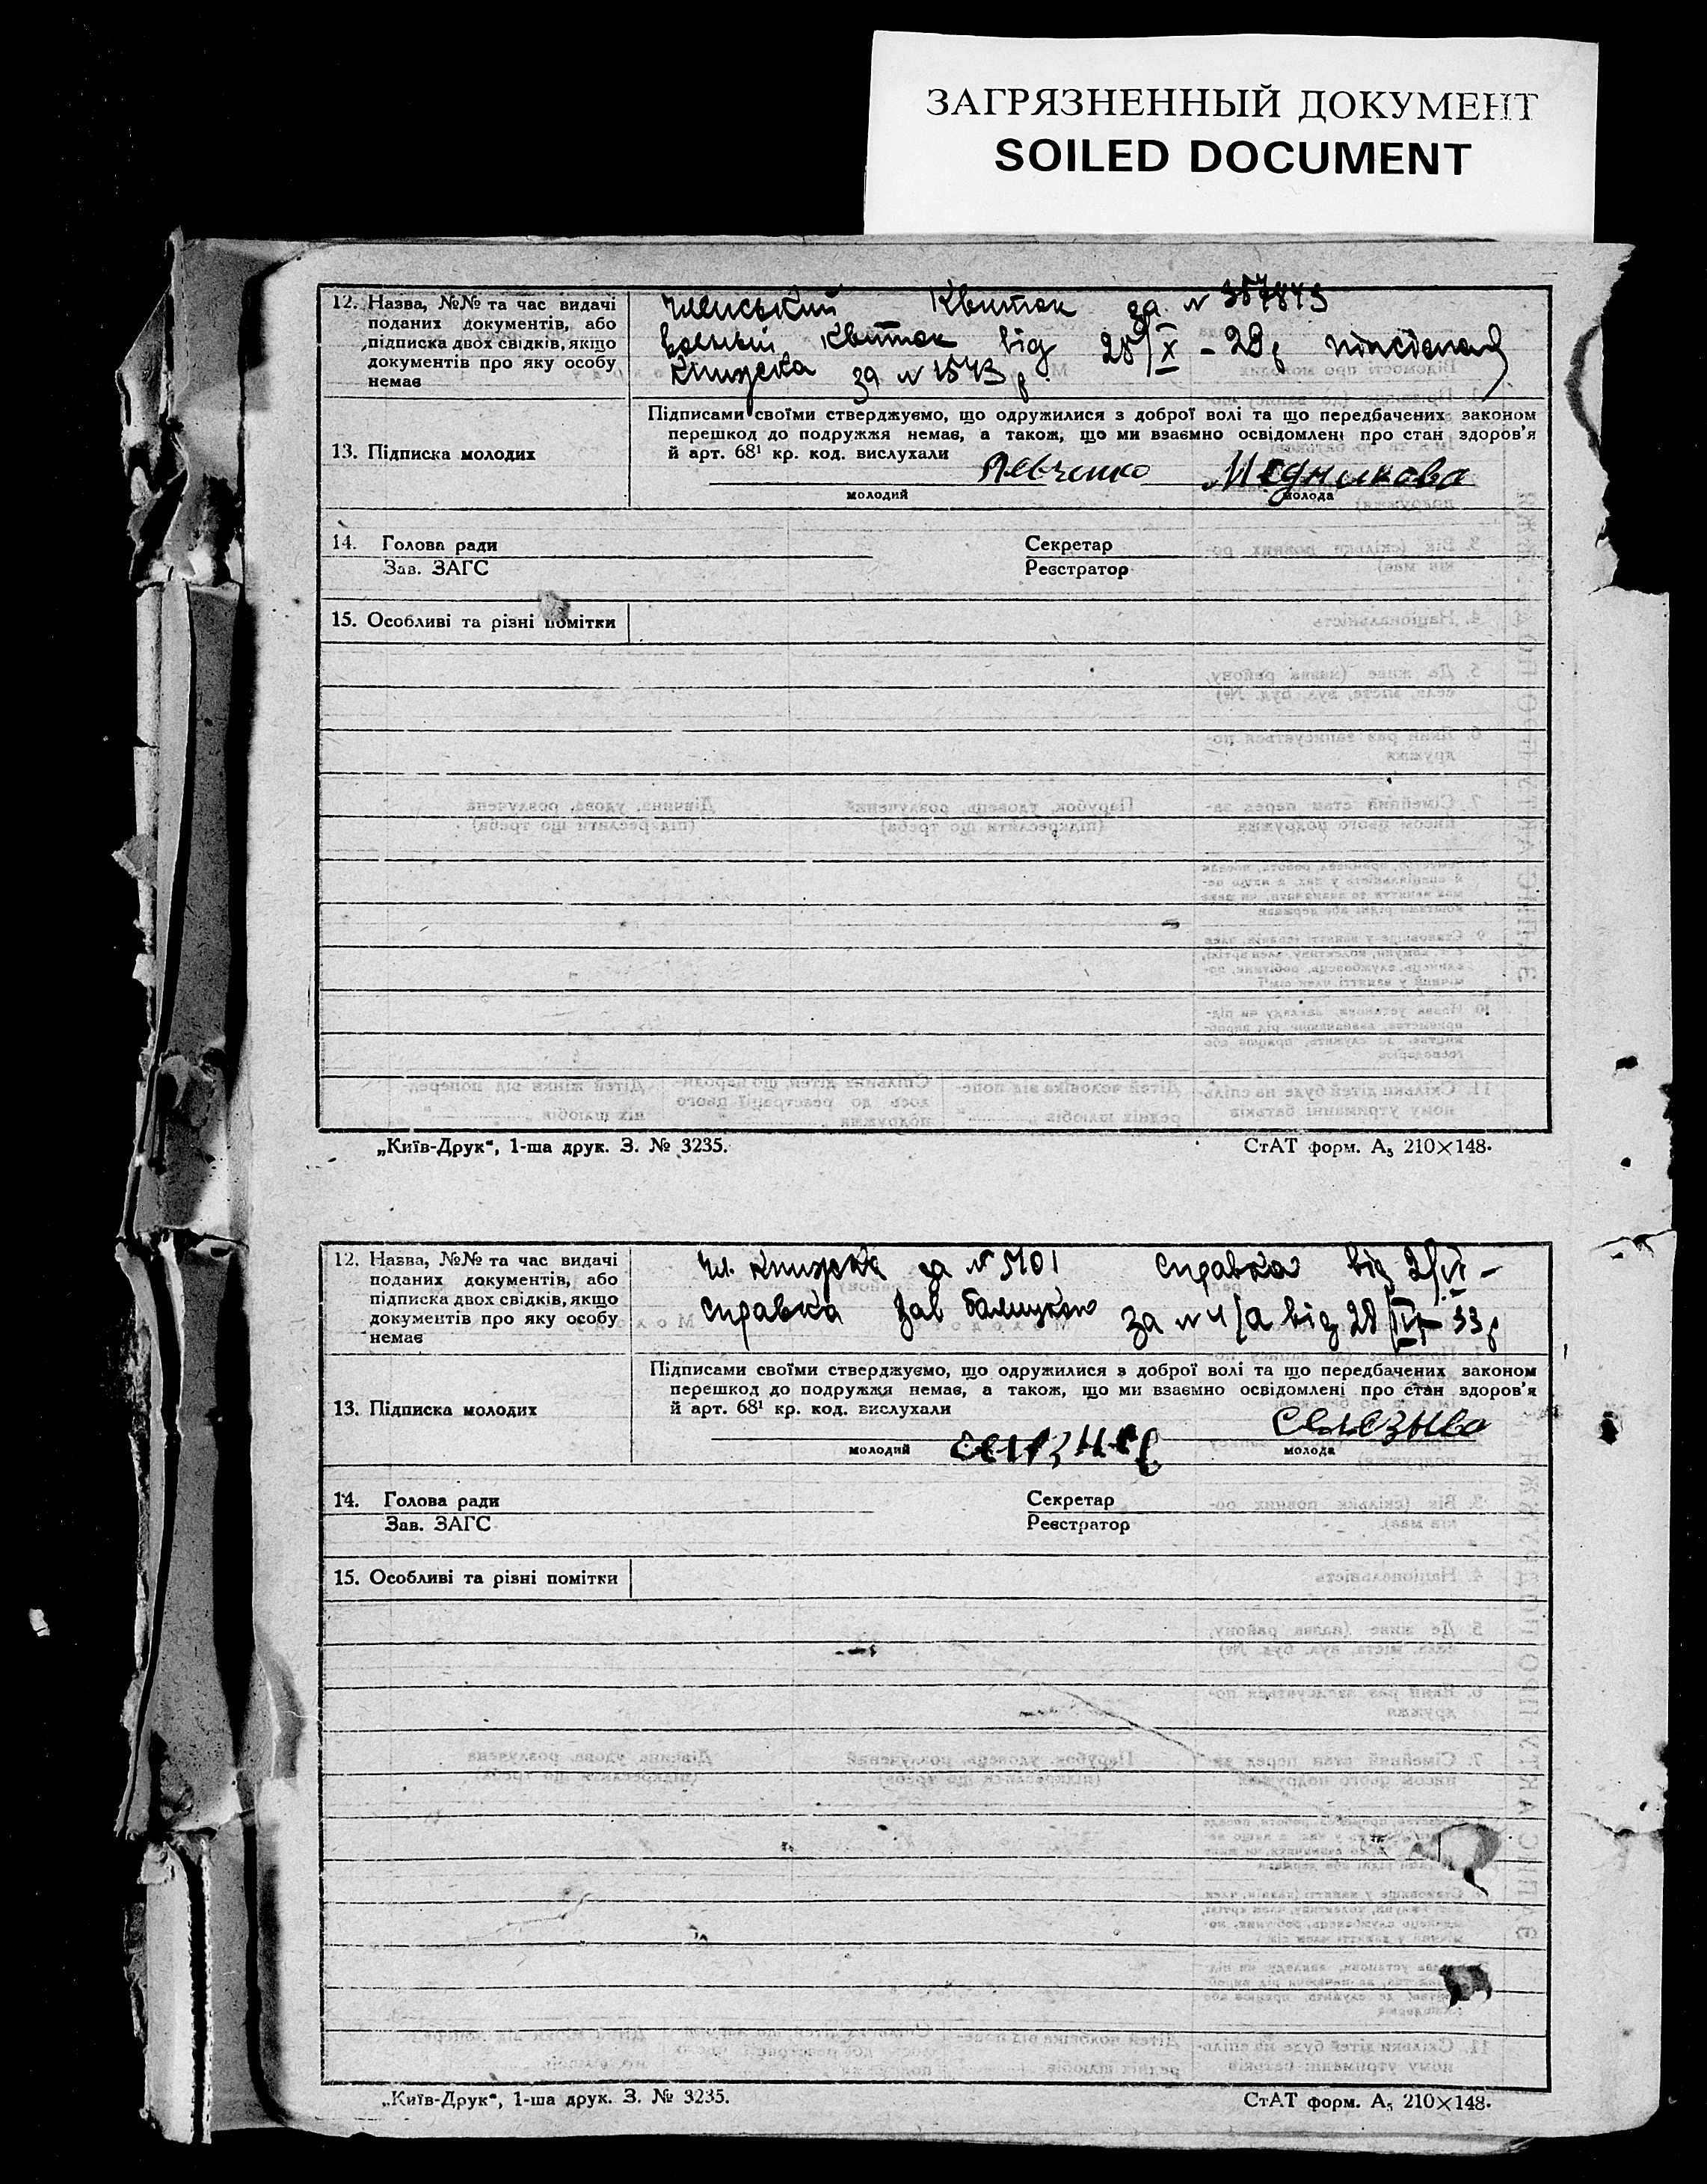 ЗАГРЯЗНЕННЫЙ ДОКУМЕНТ
SOILED DOCUMENT
12. Назва, №№ та час видачі
поданих документів, або
підписка двох свідків, якщо
документів про яку особу
немає
Членський Квиток за № 357843
Квиток від 28/X – 29р
Книжка за № 1543 р
13. Підписка молодих
Підписами своїми стверджуємо, що одружилися з доброї волі та що передбачених законом
перешкод до подружжя немає, а також, що ми взаємно освідомлені про стан здоров'я
й арт. 68¹ кр. код. вислухали
Левченко Медникова
молодий молода
14. Голова ради Секретар
Зав. ЗАГС Реєстратор
15. Особливі та різні помітки
„Київ-Друк“, 1-ша друк. З. № 3235. СтАТ форм. А₅ 210×148.
12. Назва, №№ та час видачі
поданих документів, або
підписка двох свідків, якщо
документів про яку особу
немає
Чл. книжка за № 5101 справка від 2/VI –
справка за № 4/а від 28/IV – 33р
13. Підписка молодих
Підписами своїми стверджуємо, що одружилися з доброї волі та що передбачених законом
перешкод до подружжя немає, а також, що ми взаємно освідомлені про стан здоров'я
й арт. 68¹ кр. код. вислухали
молодий молода
14. Голова ради Секретар
Зав. ЗАГС Реєстратор
15. Особливі та різні помітки
„Київ-Друк“, 1-ша друк. З. № 3235. СтАТ форм. А₅ 210×148.